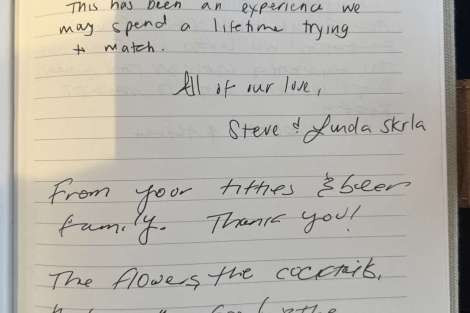 This has been an experience we
may spend a lifetime trying
to match.
All of our love,
Steve & Linda Skrla
From your titties & beer
family. Thank you!
The flowers, the cocktails,